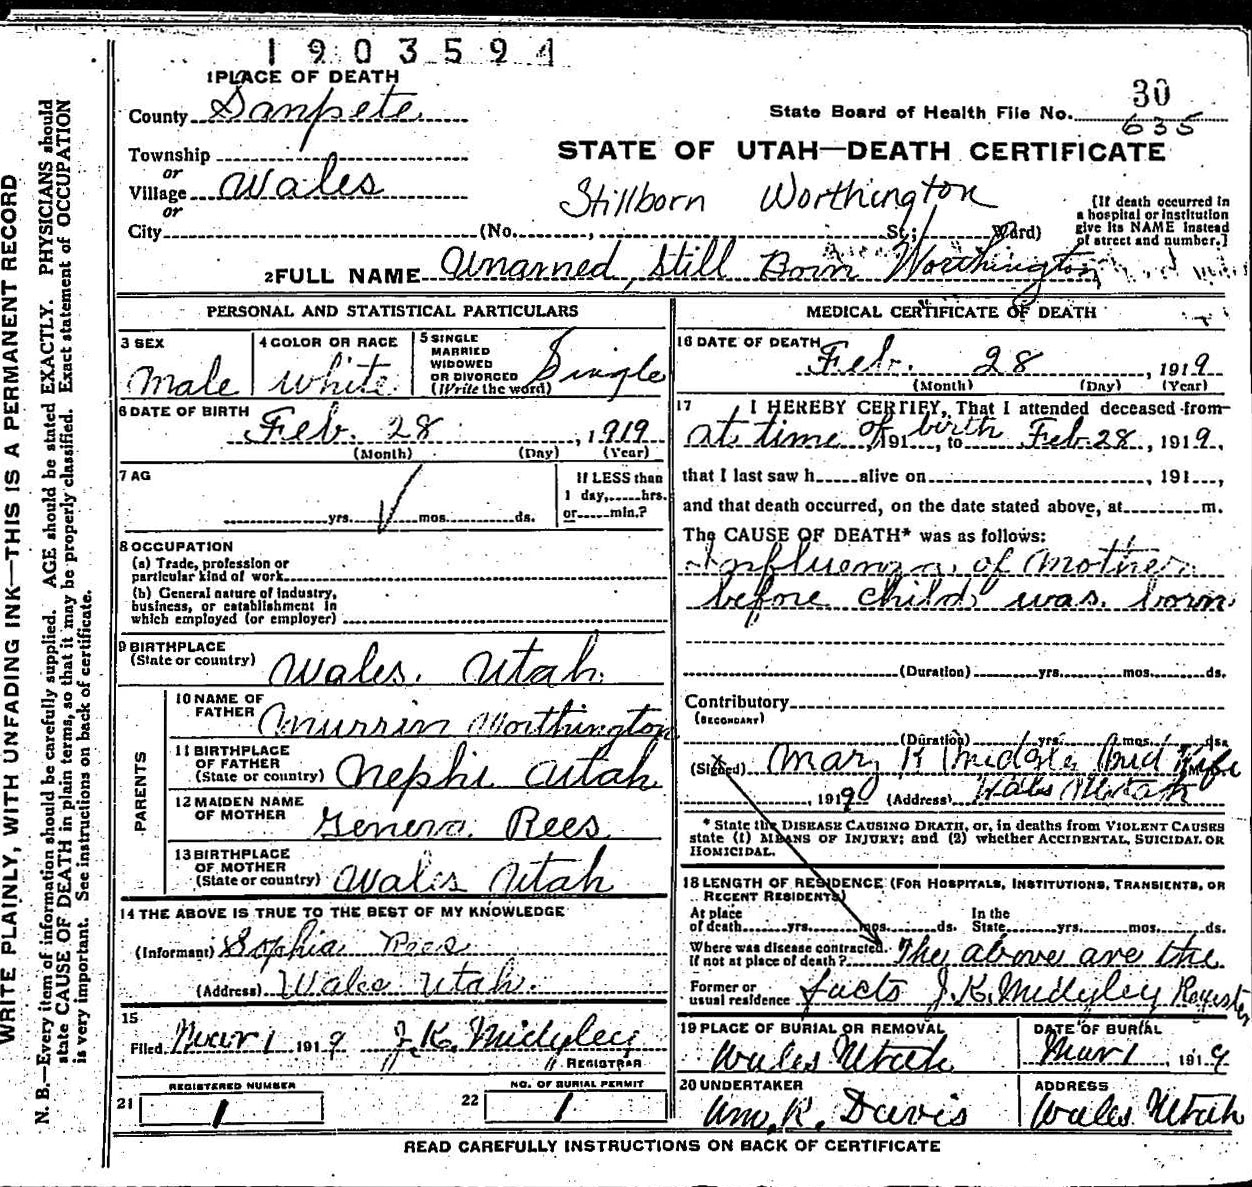 1903594
1 PLACE OF DEATH
County Sanpete
Township
or
Village Wales
or
City (No. , St.; Ward)
State Board of Health File No. 30
635
STATE OF UTAH—DEATH CERTIFICATE
Stillborn Worthington
[If death occurred in
a hospital or institution
give its NAME instead
of street and number.]
2 FULL NAME Unamed, Still Born Worthington
PERSONAL AND STATISTICAL PARTICULARS
3 SEX
Male
4 COLOR OR RACE
white
5 SINGLE
MARRIED
WIDOWED
OR DIVORCED
(Write the word)
Single
6 DATE OF BIRTH
Feb. 28, 1919
(Month) (Day) (Year)
7 AG
yrs. mos. ds.
If LESS than
1 day, hrs.
or min.?
8 OCCUPATION
(a) Trade, profession or
particular kind of work
(b) General nature of industry,
business, or establishment in
which employed (or employer)
9 BIRTHPLACE
(State or country) Wales. Utah.
PARENTS
10 NAME OF
FATHER Murrin Worthington
11 BIRTHPLACE
OF FATHER
(State or country) Nephi Utah
12 MAIDEN NAME
OF MOTHER Geneva Rees
13 BIRTHPLACE
OF MOTHER
(State or country) Wales Utah
14 THE ABOVE IS TRUE TO THE BEST OF MY KNOWLEDGE
(Informant) Sophia Rees
(Address) Wales Utah.
15
Filed Mar 1 1919 J. K. Midgley
REGISTRAR
REGISTERED NUMBER
21 1
NO. OF BURIAL PERMIT
22 1
MEDICAL CERTIFICATE OF DEATH
16 DATE OF DEATH
Feb. 28, 1919
(Month) (Day) (Year)
17 I HEREBY CERTIFY, That I attended deceased from
at time of birth 191 , to Feb 28, 1919,
that I last saw h alive on , 191 ,
and that death occurred, on the date stated above, at m.
The CAUSE OF DEATH* was as follows:
Influenza of Mother
before child was born
(Duration) yrs. mos. ds.
Contributory
(SECONDARY)
(Duration) yrs. mos. ds.
(Signed) Mary K Midgley Mid Wife
, 1919 (Address) Wales Utah
* State the DISEASE CAUSING DEATH, or, in deaths from VIOLENT CAUSES
state (1) MEANS OF INJURY; and (2) whether ACCIDENTAL, SUICIDAL OR
HOMICIDAL.
18 LENGTH OF RESIDENCE (FOR HOSPITALS, INSTITUTIONS, TRANSIENTS, OR
RECENT RESIDENTS)
At place
of death yrs. mos. ds.
In the
State yrs. mos. ds.
Where was disease contracted.
If not at place of death? The above are the
Former or
usual residence facts J. K. Midgley
19 PLACE OF BURIAL OR REMOVAL
Wales Utah
DATE OF BURIAL
Mar 1, 1919
20 UNDERTAKER
Wm. R. Davis
ADDRESS
Wales Utah
READ CAREFULLY INSTRUCTIONS ON BACK OF CERTIFICATE
WRITE PLAINLY, WITH UNFADING INK—THIS IS A PERMANENT RECORD
N. B.—Every item of information should be carefully supplied. AGE should be stated EXACTLY. PHYSICIANS should
state CAUSE OF DEATH in plain terms, so that it may be properly classified. Exact statement of OCCUPATION
is very important. See instructions on back of certificate.